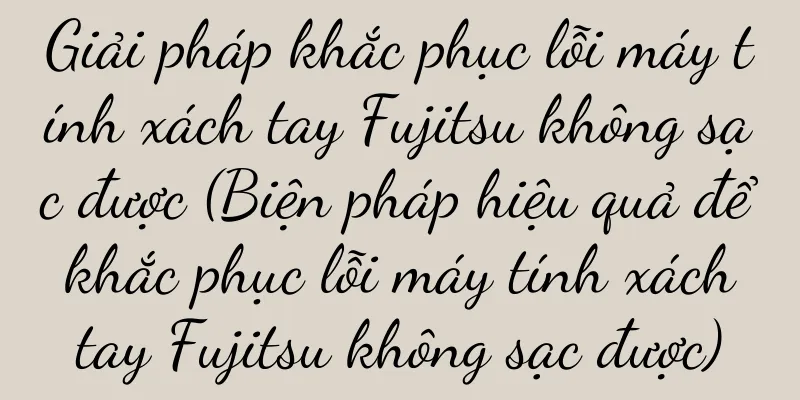 Giải pháp khắc phục lỗi máy t
ính xách tay Fujitsu không sạ
c được (Biện pháp hiệu quả để
khắc phục lỗi máy tính xách
tay Fujitsu không sạc được)